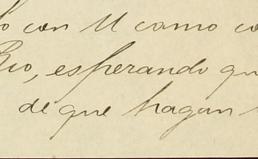 con U como co
Rio, esperando qu
de que hagan